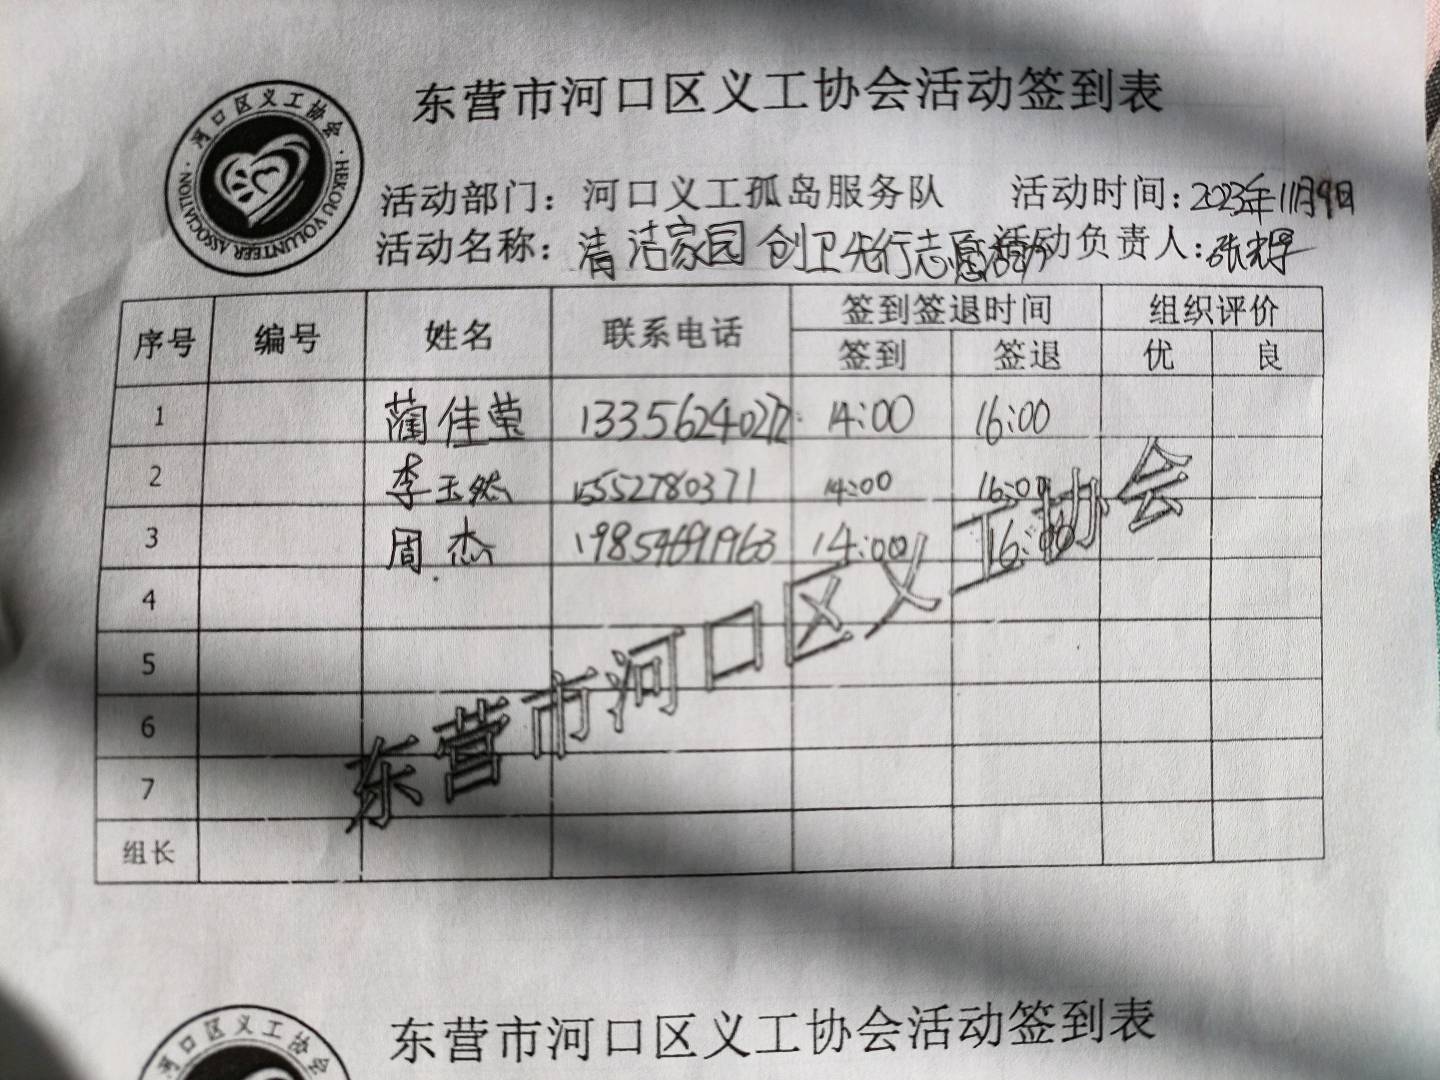 东营市河口区义工协会活动签到表
河口区义工协会
HEKOU VOLUNTEER ASSOCIATION
活动部门：河口义工孤岛服务队 活动时间：2023年11月9日
活动名称：清洁家园创卫先行志愿活动 活动负责人：张
序号 编号 姓名 联系电话 签到签退时间 组织评价
签到 签退 优 良
1 蔺佳莹 13356240272 14:00 16:00
2 李玉然 15552780371 14:00 16:00
3 周杰 19854691963 14:00 16:00
4
5
6
7
组长
东营市河口区义工协会
东营市河口区义工协会活动签到表
河口区义工协会